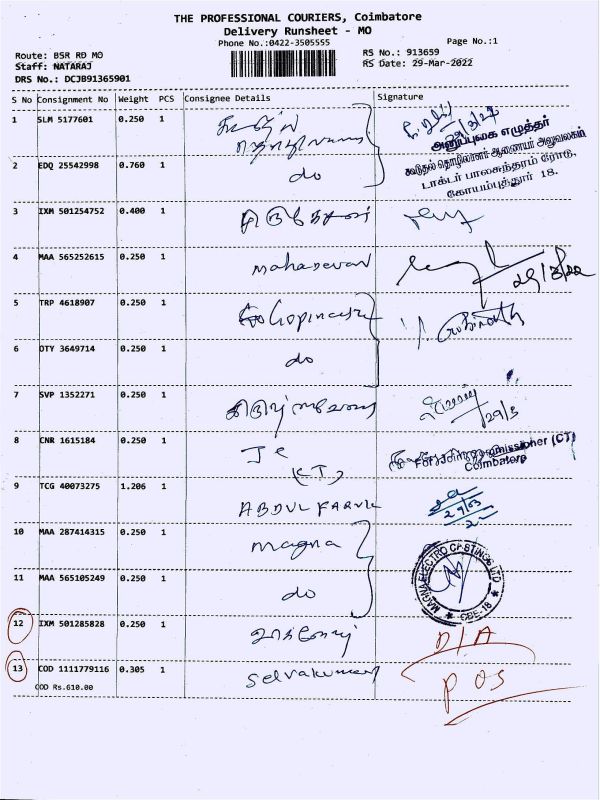 THE PROFESSIONAL COURIERS, Coimbatore
Delivery Runsheet - MO
Phone No.:0422-3505555
Page No.:1
Route: BSR RD MO
RS No.: 913659
Staff: NATARAJ
RS Date: 29-Mar-2022
DRS No.: DCJB91365901
S No Consignment No Weight PCS Consignee Details Signature
1 SLM 5177601 0.250 1
அனுப்புகை எழுத்தர்
கூடுதல் தொழிலாளர் ஆணையர் அலுவலகம்
டாக்டர் பாலசுந்தரம் ரோடு,
கோயம்புத்தூர் 18.
2 EDQ 25542998 0.760 1 do
3 IXM 501254752 0.400 1
4 MAA 565252615 0.250 1 mahadevan
29/3/22
5 TRP 4618907 0.250 1 Gopinath
6 OTY 3649714 0.250 1 do
7 SVP 1352271 0.250 1
29/3
8 CNR 1615184 0.250 1 Jc
(CT)
For Joint Commissioner (CT)
Coimbatore
9 TCG 40073275 1.206 1 ABDUL FARUK
29/03
22
10 MAA 287414315 0.250 1 magna
11 MAA 565105249 0.250 1 do
MAGNA ELECTRO CASTINGS LTD
CBE-18
12 IXM 501285828 0.250 1 D/A
13 COD 1111779116 0.305 1 Selvakumar POS
COD Rs.610.00